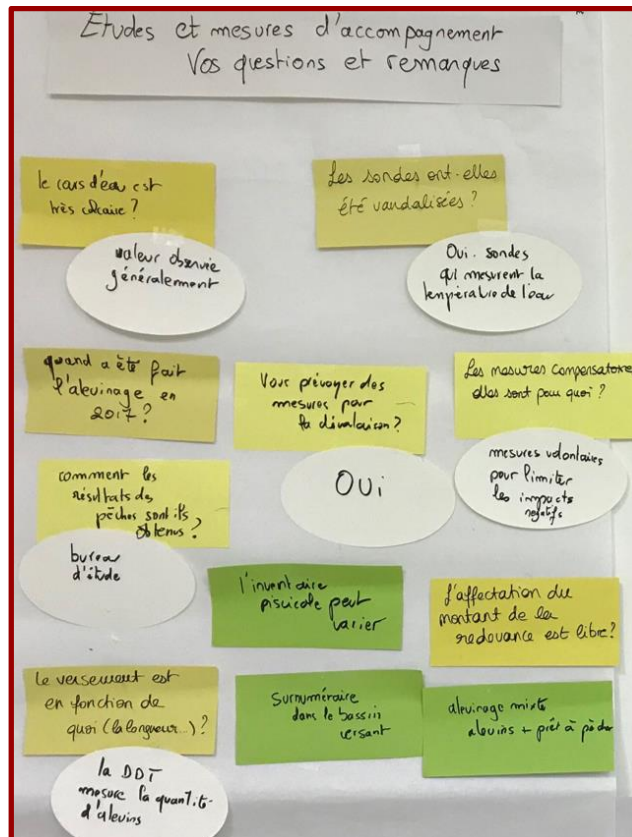 Etudes et mesures d'accompagnement
Vos questions et remarques
le cours d'eau est
très calcaire?
valeur observée
généralement
Les sondes ont-elles
été vandalisées?
Oui. sondes
qui mesurent la
température de l'eau
quand a été fait
l'alevinage en
2017?
Vous prévoyez des
mesures pour
la dévalaison?
OUI
Les mesures compensatoires
elles sont pour quoi?
mesures volontaires
pour limiter
les impacts
négatifs
comment les
résultats des
pêches sont ils
obtenus?
bureau
d'étude
l'inventaire
piscicole peut
varier
l'affectation du
montant de la
redevance est libre?
le versement est
en fonction de
quoi (la longueur...)?
la DDT
mesure la quantité
d'alevins
Surnuméraire
dans le bassin
versant
alevinage mixte
alevins + prêt à pêcher